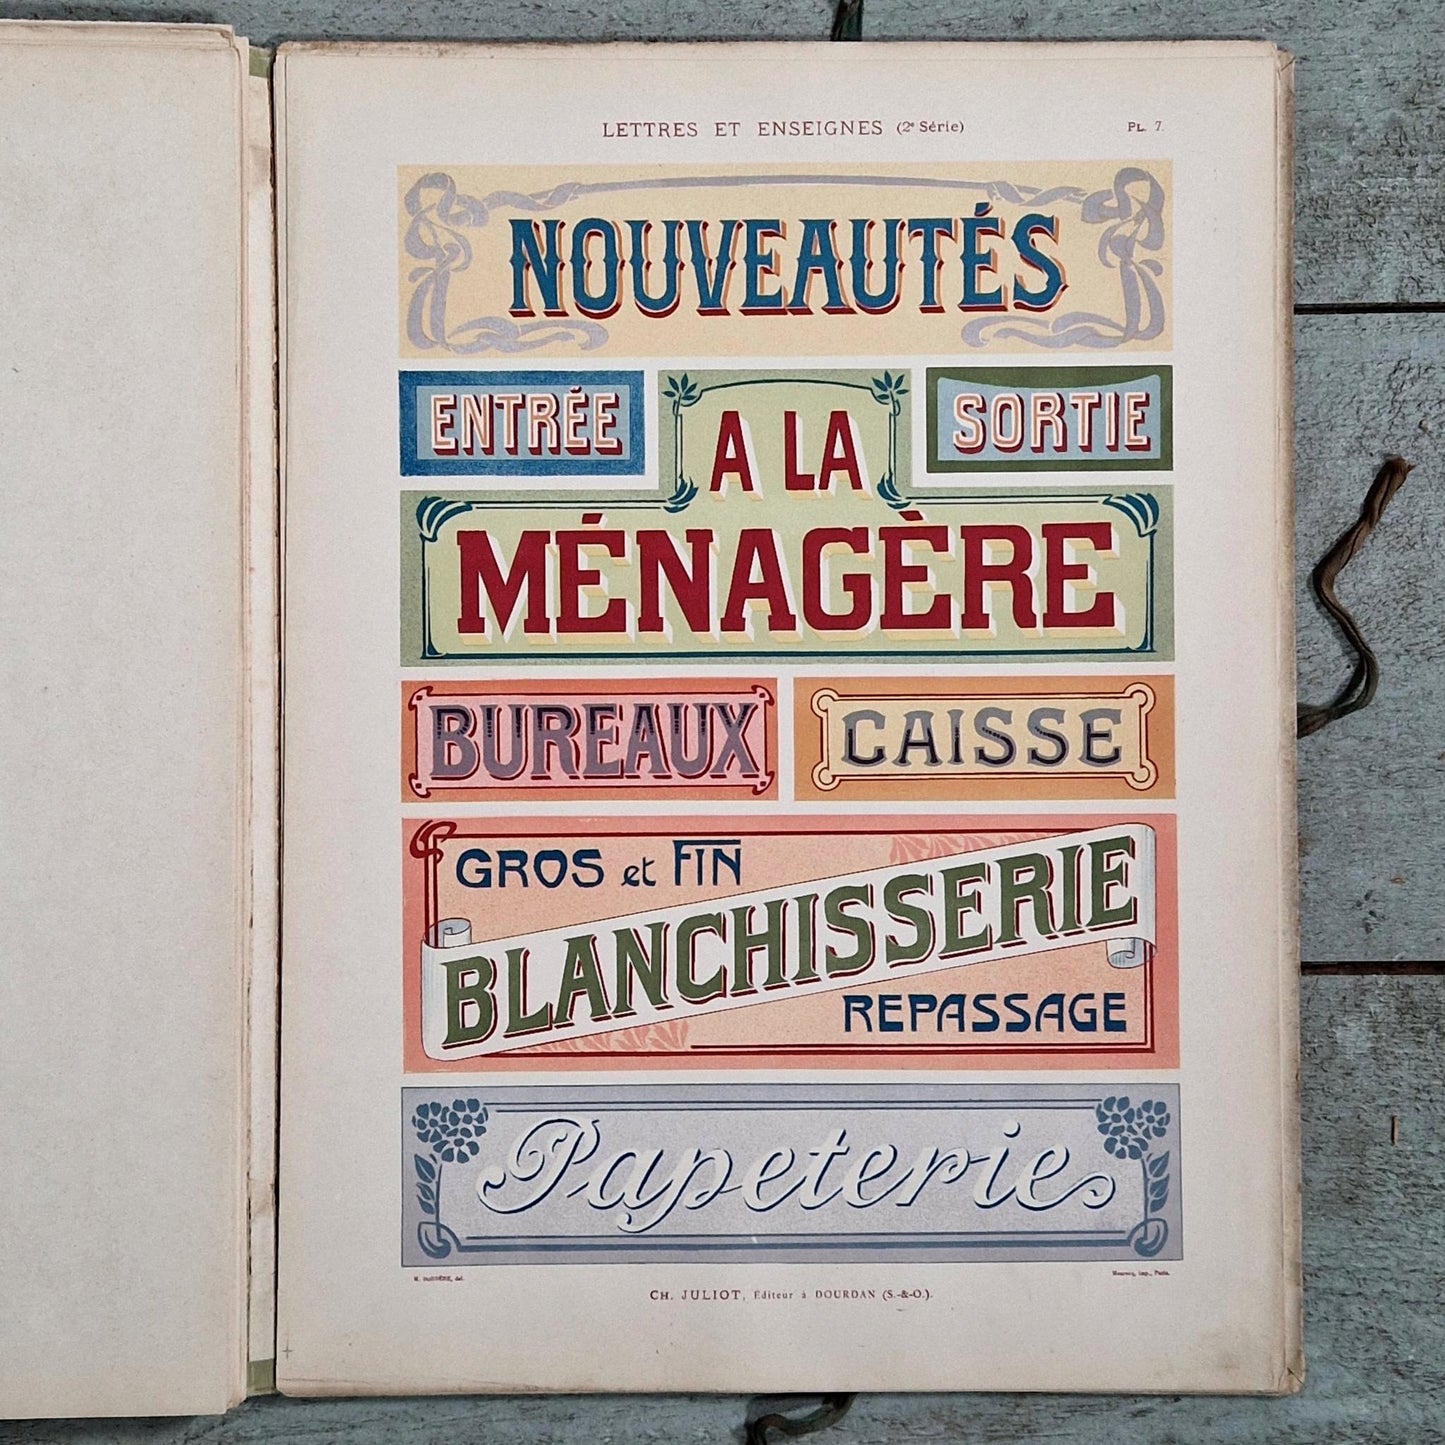 LETTRES ET ENSEIGNES (2e Série)
PL. 7.
NOUVEAUTÉS
ENTRÉE
SORTIE
A LA
MÉNAGÈRE
BUREAUX
CAISSE
GROS et FIN
BLANCHISSERIE
REPASSAGE
Papeterie
del.
Imp., Paris.
CH. JULIOT, Éditeur à DOURDAN (S.-&-O.).